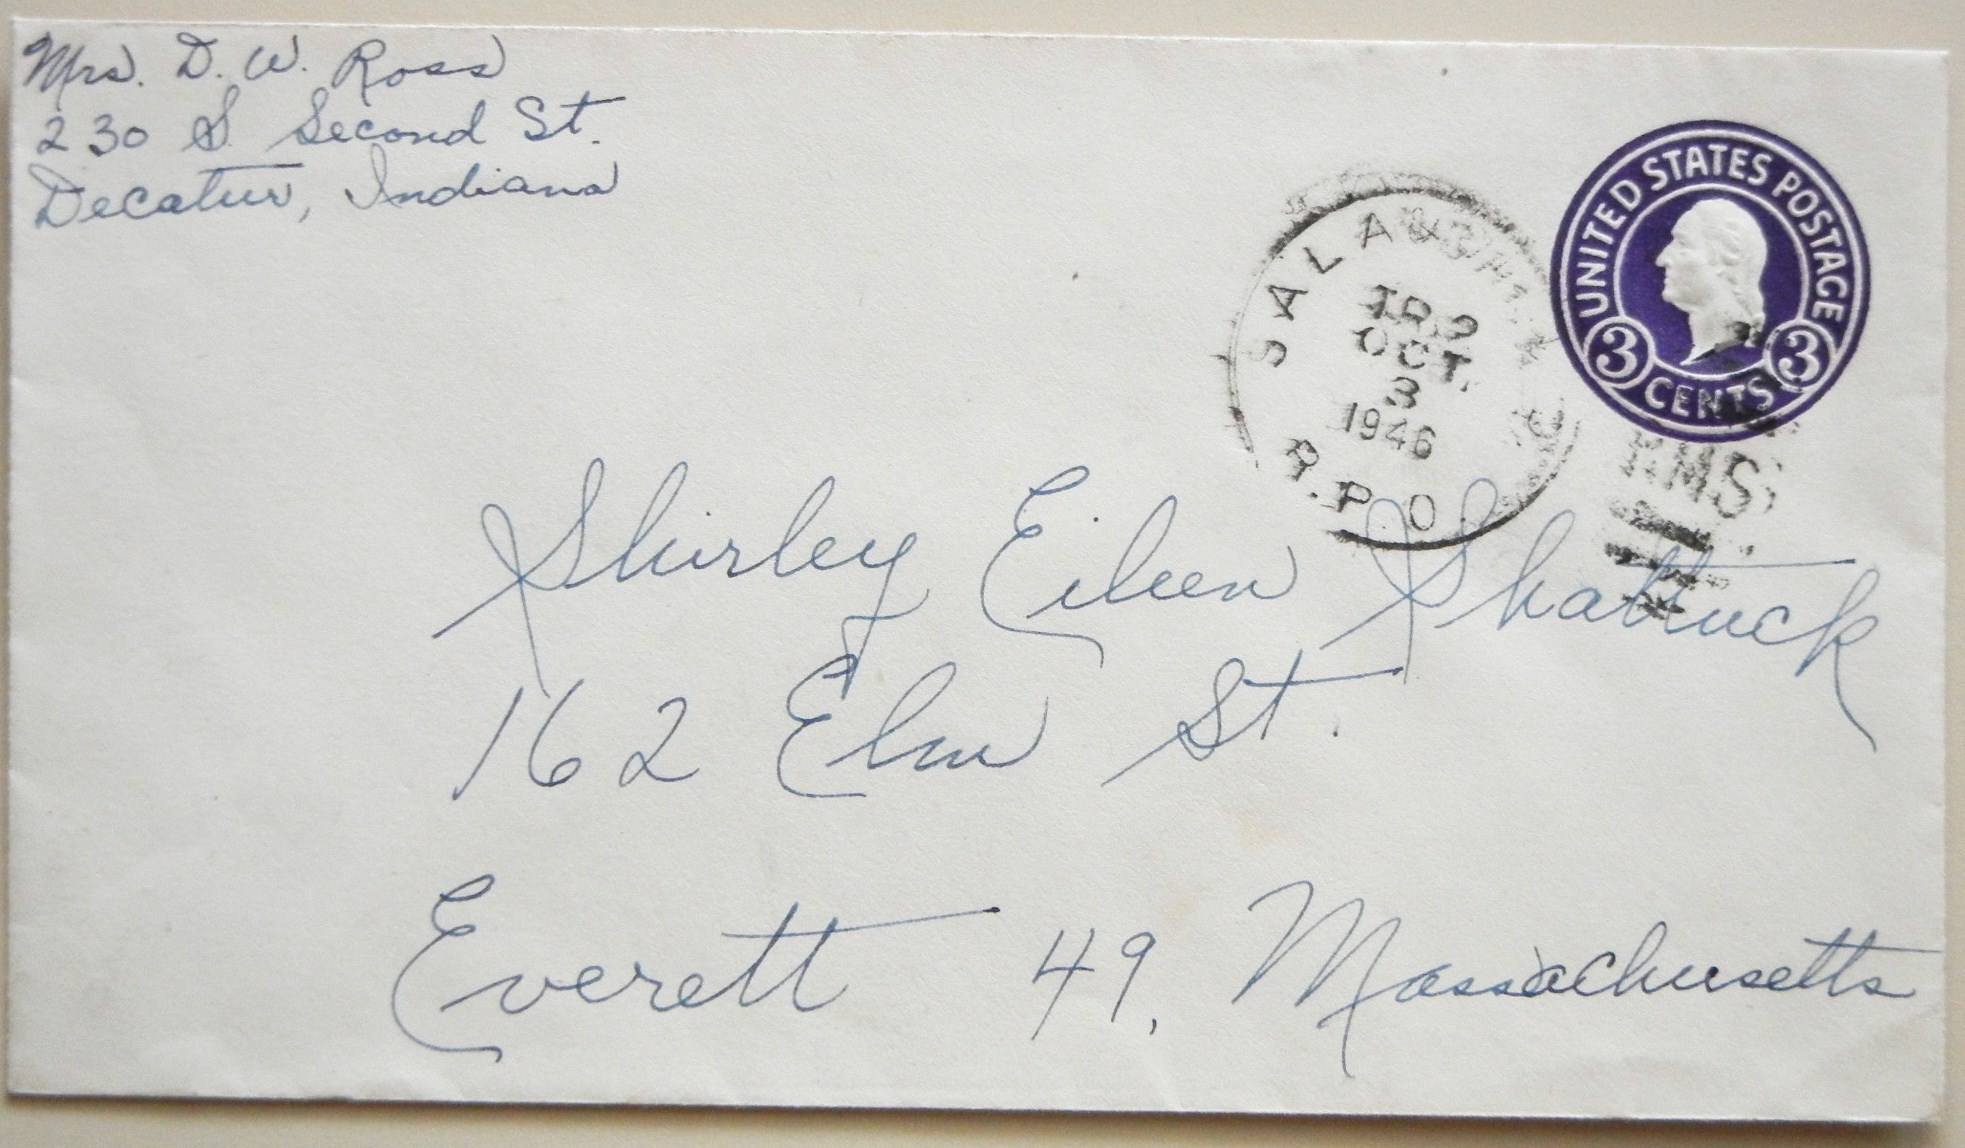 Mrs. D. W. Ross
230 S. Second St.
Decatur, Indiana
UNITED STATES POSTAGE
3 CENTS 3
SALA
TR.2
OCT.
3
1946
R.P.O
RMS
Shirley Eileen Shattuck
162 Elm St.
Everett 49, Massachusetts